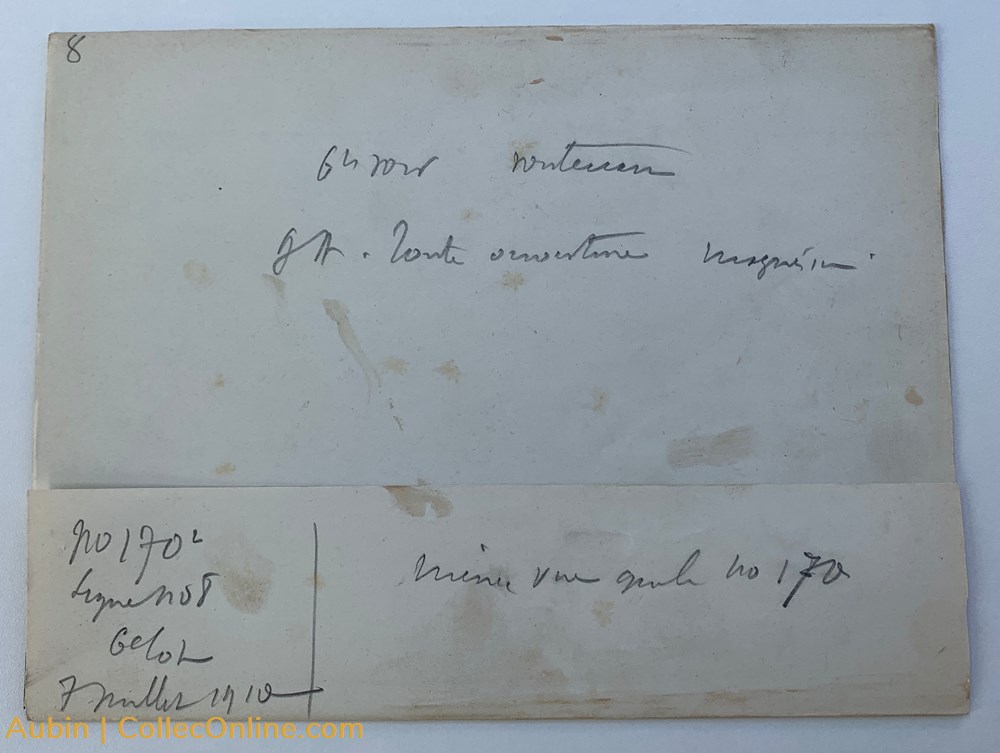 8
6h soir souterrain
GA. Toute ouverture magnésium.
No 170²
Ligne no 8
6e lot
7 Juillet 1910
même vue que le no 170
Aubin | CollecOnline.com